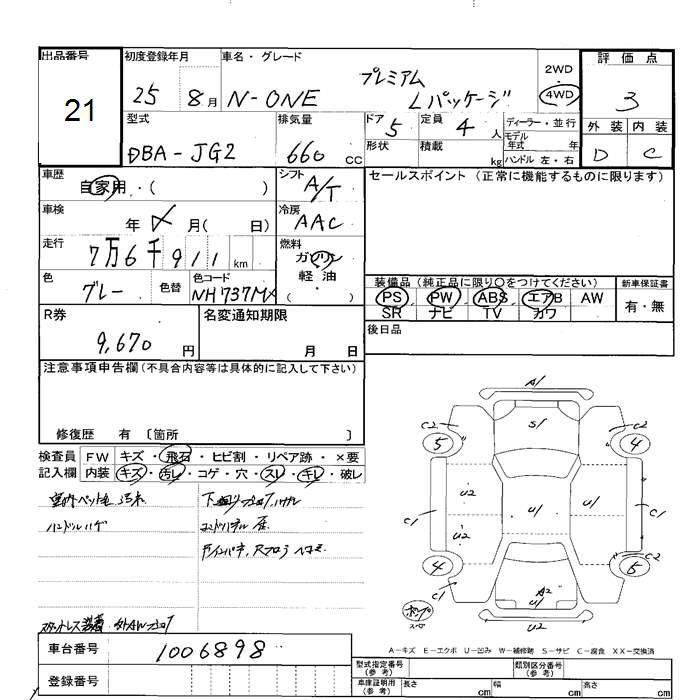 出品番号 初度登録年月 車名・グレード 評価点
21 25 8月 N-ONE プレミアム Lパッケージ 2WD ・ 4WD 3
型式 排気量 ドア 定員 ディーラー・並行 外装 内装
DBA-JG2 660 CC 5 4 人 モデル年式 年 D C
形状 積載 kg ハンドル 左・右
車歴 自家用・( ) シフト A/T セールスポイント (正常に機能するものに限ります)
車検 年 月( 日) 冷房 AAC
走行 7万6千911 km 燃料 ガソリン
軽油・( )
色 グレー 色替 色コード NH737MX
装備品 (純正品に限り〇をつけてください) 新車保証書
PS PW ABS エアB AW 有・無
SR ナビ TV カワ
R券 9,670 円 名変通知期限 月 日 後日品
注意事項申告欄 (不具合内容等は具体的に記入して下さい)
修復歴 有 〔箇所 〕
検査員記入欄 FW キズ・飛石・ヒビ割・リペア跡・×要
内装 キズ・汚レ・コゲ・穴・スレ・キレ・破レ
ハンドルハゲ
A1
S1
C2 C2
5 4
U2 U1 U1 C1 C1
U2
4 5 C2
C1 A2
U1
U2
A-キズ E-エクボ U-凹み W-補修跡 S-サビ C-腐食 XX-交換済
車台番号 1006898
登録番号
型式指定番号 (参考) 類別区分番号 (参考)
車庫証明用 (参考) 長さ cm 幅 cm 高さ cm